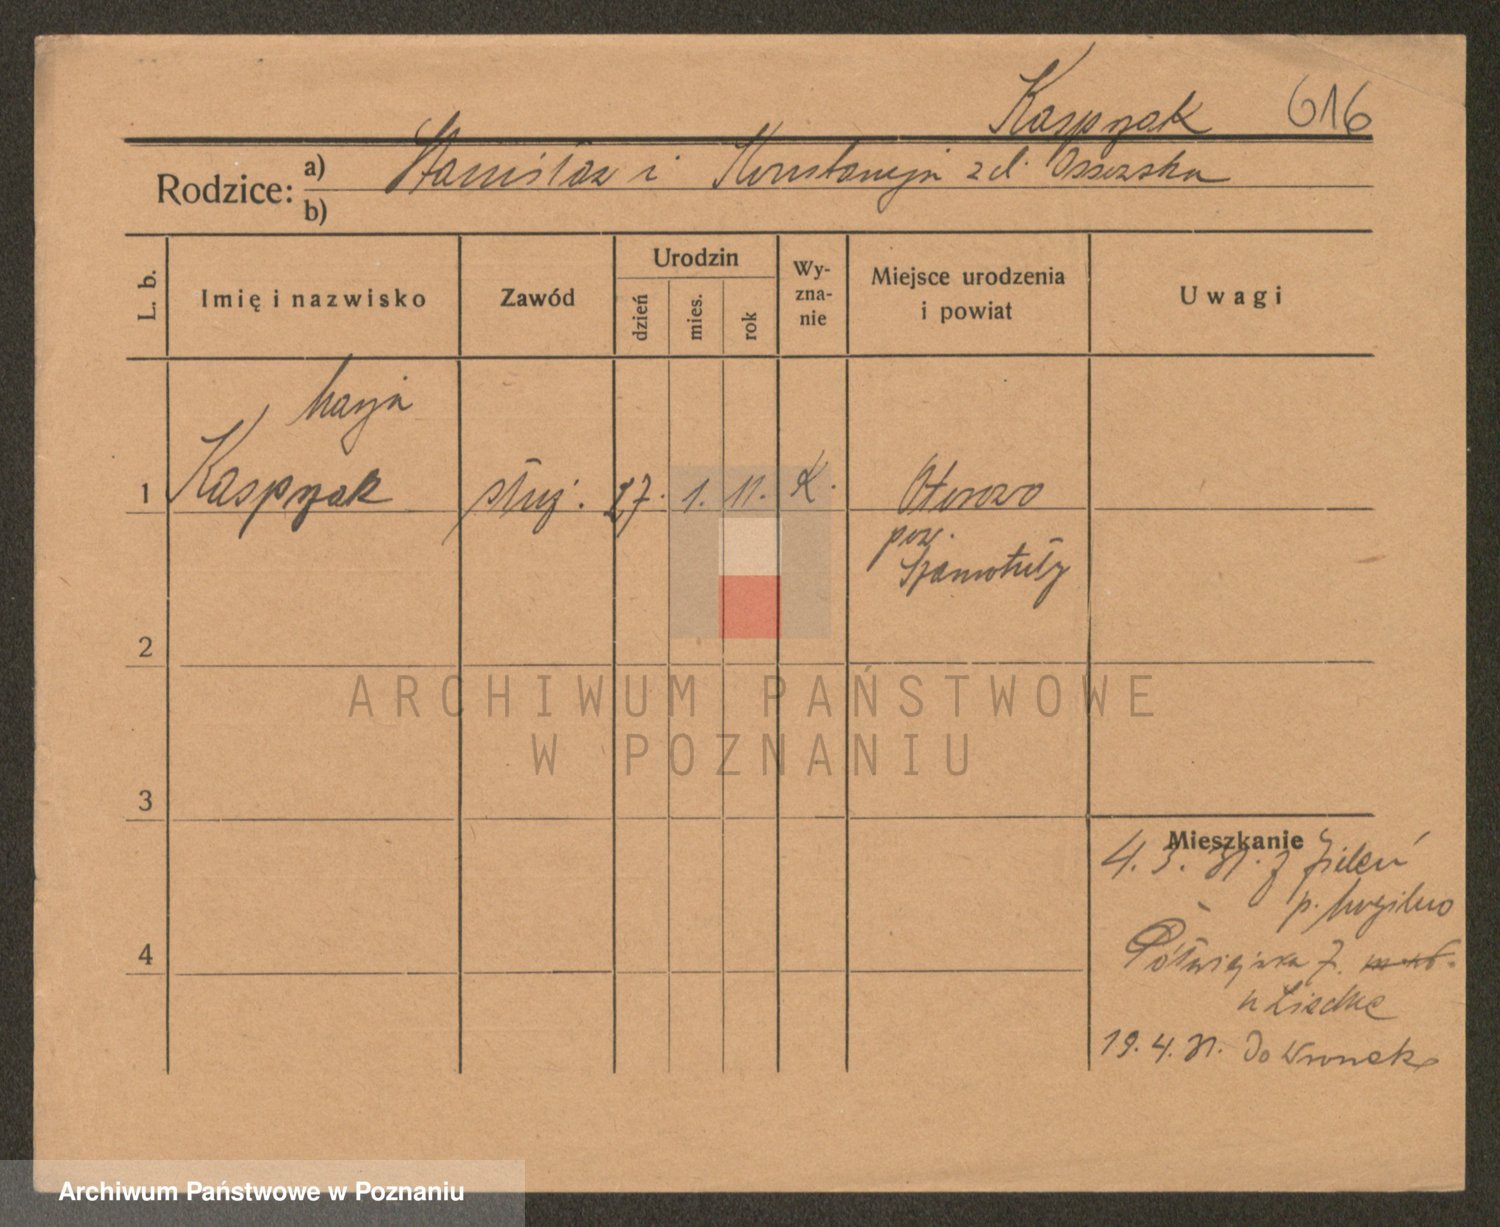 Kasprzak 616
Rodzice: a) Stanisław i Konstancja zd.
b)
L. b.
Imię i nazwisko
Zawód
Urodzin
dzień
mies.
rok
Wy-
zna-
nie
Miejsce urodzenia
i powiat
Uwagi
Marja
1 Kasprzak służ. 27. 1. 11. K. Otorowo
pow.
Szamotuły
2
3
4
Mieszkanie
4. 3. 31. z Zieleń
p. Mogilno
Półwiejska 7.
u Liedke
19. 4. 31. do Wronek
ARCHIWUM PAŃSTWOWE
W POZNANIU
Archiwum Państwowe w Poznaniu